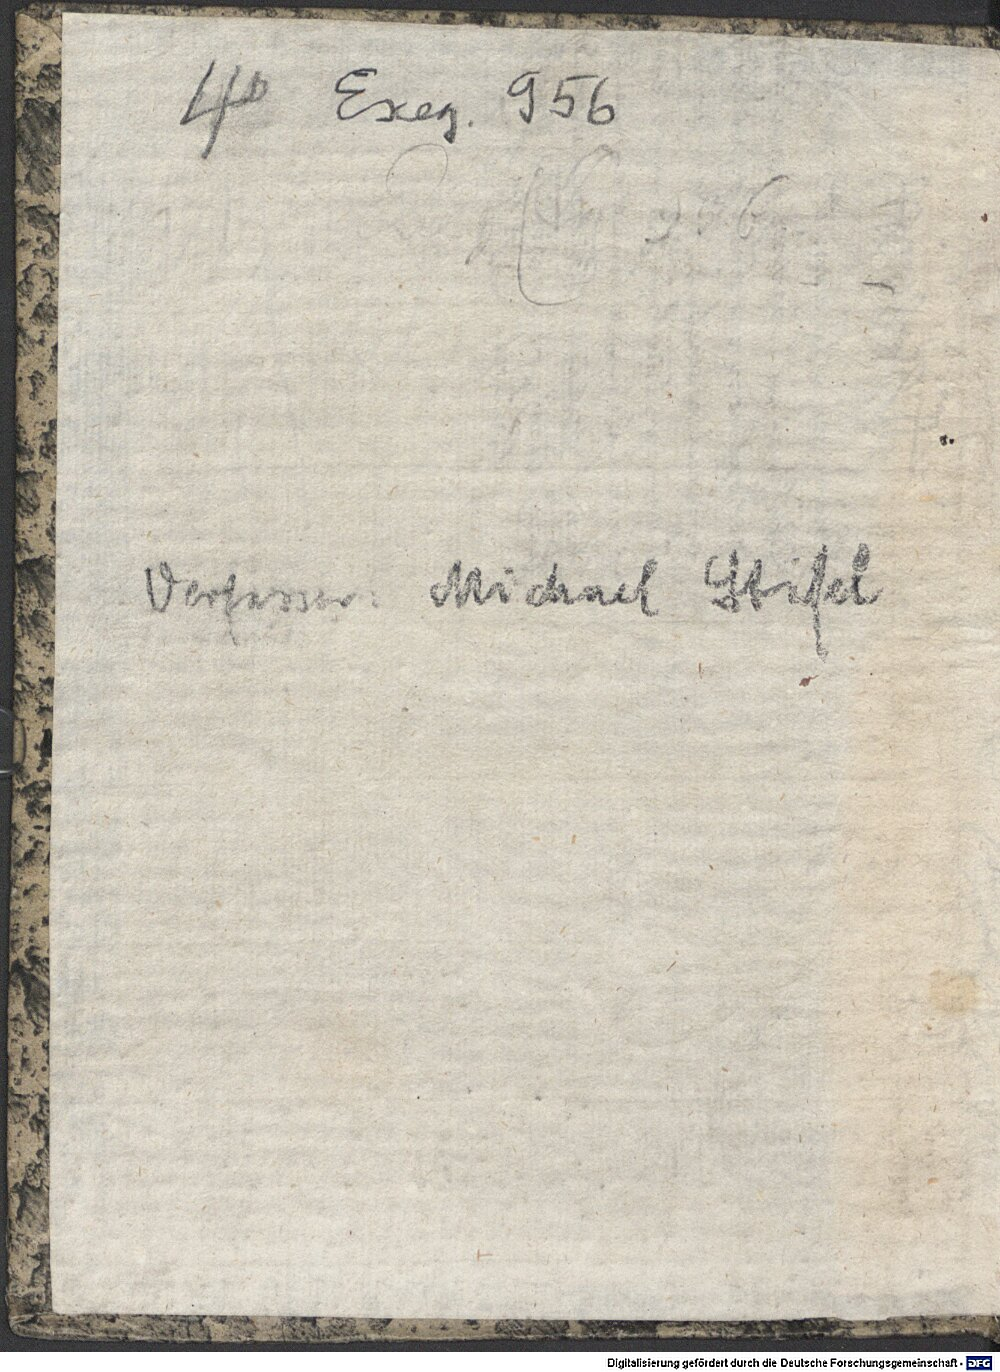 4° Exeg. 956
956
Verfasser: Michael Stifel
Digitalisierung gefördert durch die Deutsche Forschungsgemeinschaft - DFG